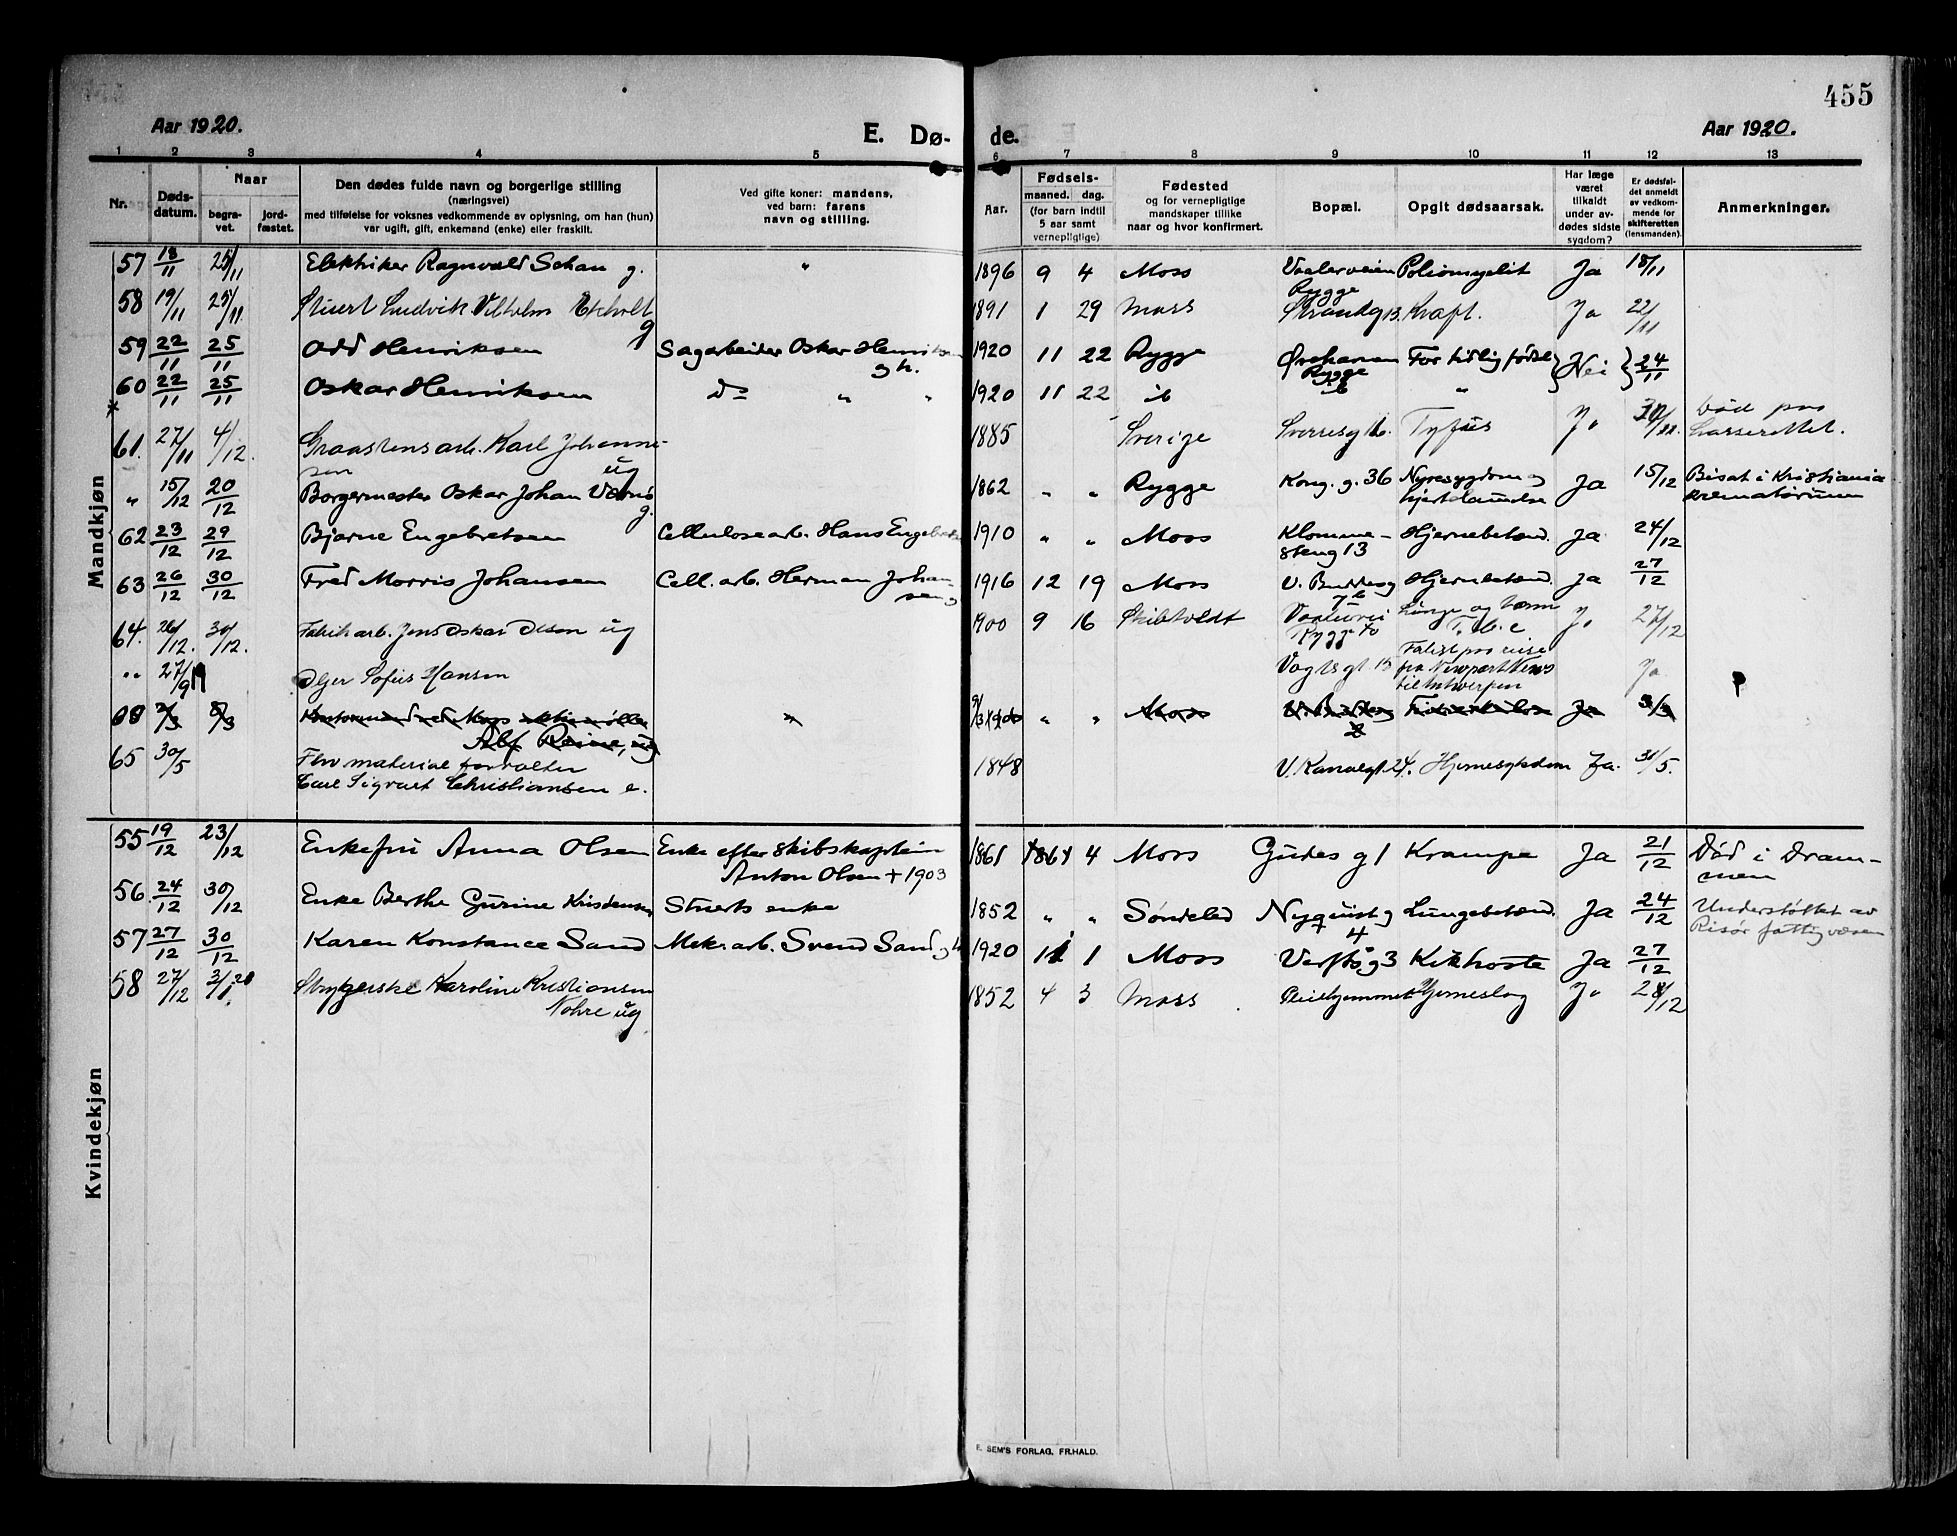 455
Aar 1920.
E. Dø-
de.
Aar 1920.
1 2 3 4 5 6 7 8 9 10 11 12 13
Nr.
Døds-
datum.
Naar
begra-
vet.
jord-
fæstet.
Den dødes fulde navn og borgerlige stilling
(næringsvei)
med tilføielse for voksnes vedkommende av oplysning, om han (hun)
var ugift, gift, enkemand (enke) eller fraskilt.
Ved gifte koner: mandens,
ved barn: farens
navn og stilling.
Aar.
Fødsels-
maaned. dag.
(for barn indtil
5 aar samt
vernepligtige)
Fødested
og for vernepligtige
mandskaper tillike
naar og hvor konfirmert.
Bopæl.
Opgit dødsaarsak.
Har læge
været
tilkaldt
under av-
dødes sidste
sygdom?
Er dødsfal-
det anmeldt
av vedkom-
mende for
skifteretten
(lensmanden).
Anmerkninger.
Mandkjøn
57 18/11 25/11 Elektriker Ragnvald Schau g. " 1896 9 4 Moss Vaalerveien Rygge Poliomyelit Ja 18/11
58 19/11 25/11 Stuert Ludvik Vilhelm g 1891 1 29 Moss Strandg 13. Kraft. Ja 22/11
59 22/11 25/11 Odd Henriksen Sagarbeider Oskar Henriksen g h. 1920 11 22 Rygge Rygge For tidlig fødsel Nei 24/11
60 22/11 25/11 Oskar Henriksen do " " 1920 11 22 ib ib "
61. 27/11 4/12. Graastensarb. Karl Johannessen ug 1885 Sverige Sverresg 16. Tyfus Ja 30/11 Død paa Lasserettet.
" 15/12 20/12 Borgermester Oskar Johan g. 1862 " " Rygge Kong. g. 36 Nyresygdom og hjertelammelse Ja 15/12 Bisat i Kristiania Krematorium
62 23/12 29/12 Bjarne Engebretsen Cellulosearb. Hans Engebretsen 1910 " " Moss Klommesteng 13 Hjernebetænd. Ja 24/12
63 26/12 30/12 Fred Morris Johansen Cell. arb. Herman Johansen g 1916 12 19 Moss V. Buddesg 7b Hjernebetænd. Ja 27/12
64. 26/12. 30/12. Fabrikarb. Jens Oskar Olsen ug 1900 9 16 Skibtvedt Rygge Lunge og Tarm T. b. c Ja 27/12
" 27/9 Sofus Hansen Vogtsgt 15 Forlist paa reise fra Newport News til Antwerpen Ja
Kontormand ved Moss aktiemøller Alf ug " " " Moss Ja
65 30/5 Fhv materialforvalter Carl Sigvart Christiansen e. 1848 V. Kanalgt 24. Hjernesygdom Ja. 31/5.
Kvindekjøn
55 19/12 23/12 Enkefru Anna Olsen Enke efter skibskaptein Anton Olsen + 1903 1861 4 Moss Gudes g 1 Krampe Ja 21/12 Død i Drammen
56. 24/12 30/12 Enke Berthe Gurine Kristensen Stuerts enke 1852 " " Søndeled Nyquistg 4 Lungebetænd. Ja 24/12 Understøttet av Risør fattigvæsen
57 27/12 30/12 Karen Konstance Sand Mek. arb. Svend Sand 1920 11 1 Moss Verftsg 3 Kikhoste Ja 27/12
58 27/12 3/1. 21 Strygerske Karoline Kristiansen Nohre ug 1852 4 3 Moss Pleiehjemmet Hjerneslag Ja 28/12
E. SEM'S FORLAG, FR.HALD.